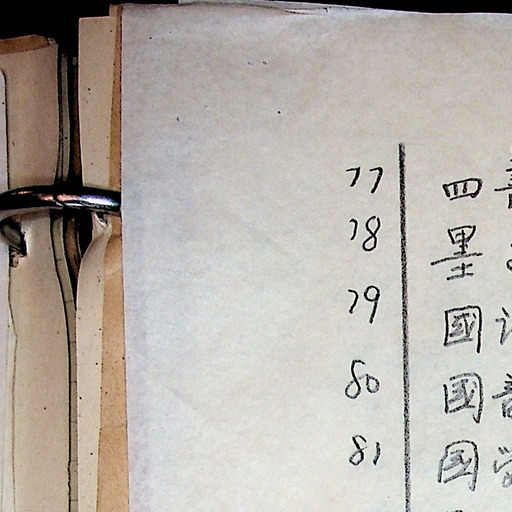 77 四
78 墨
79 國
80 國
81 国